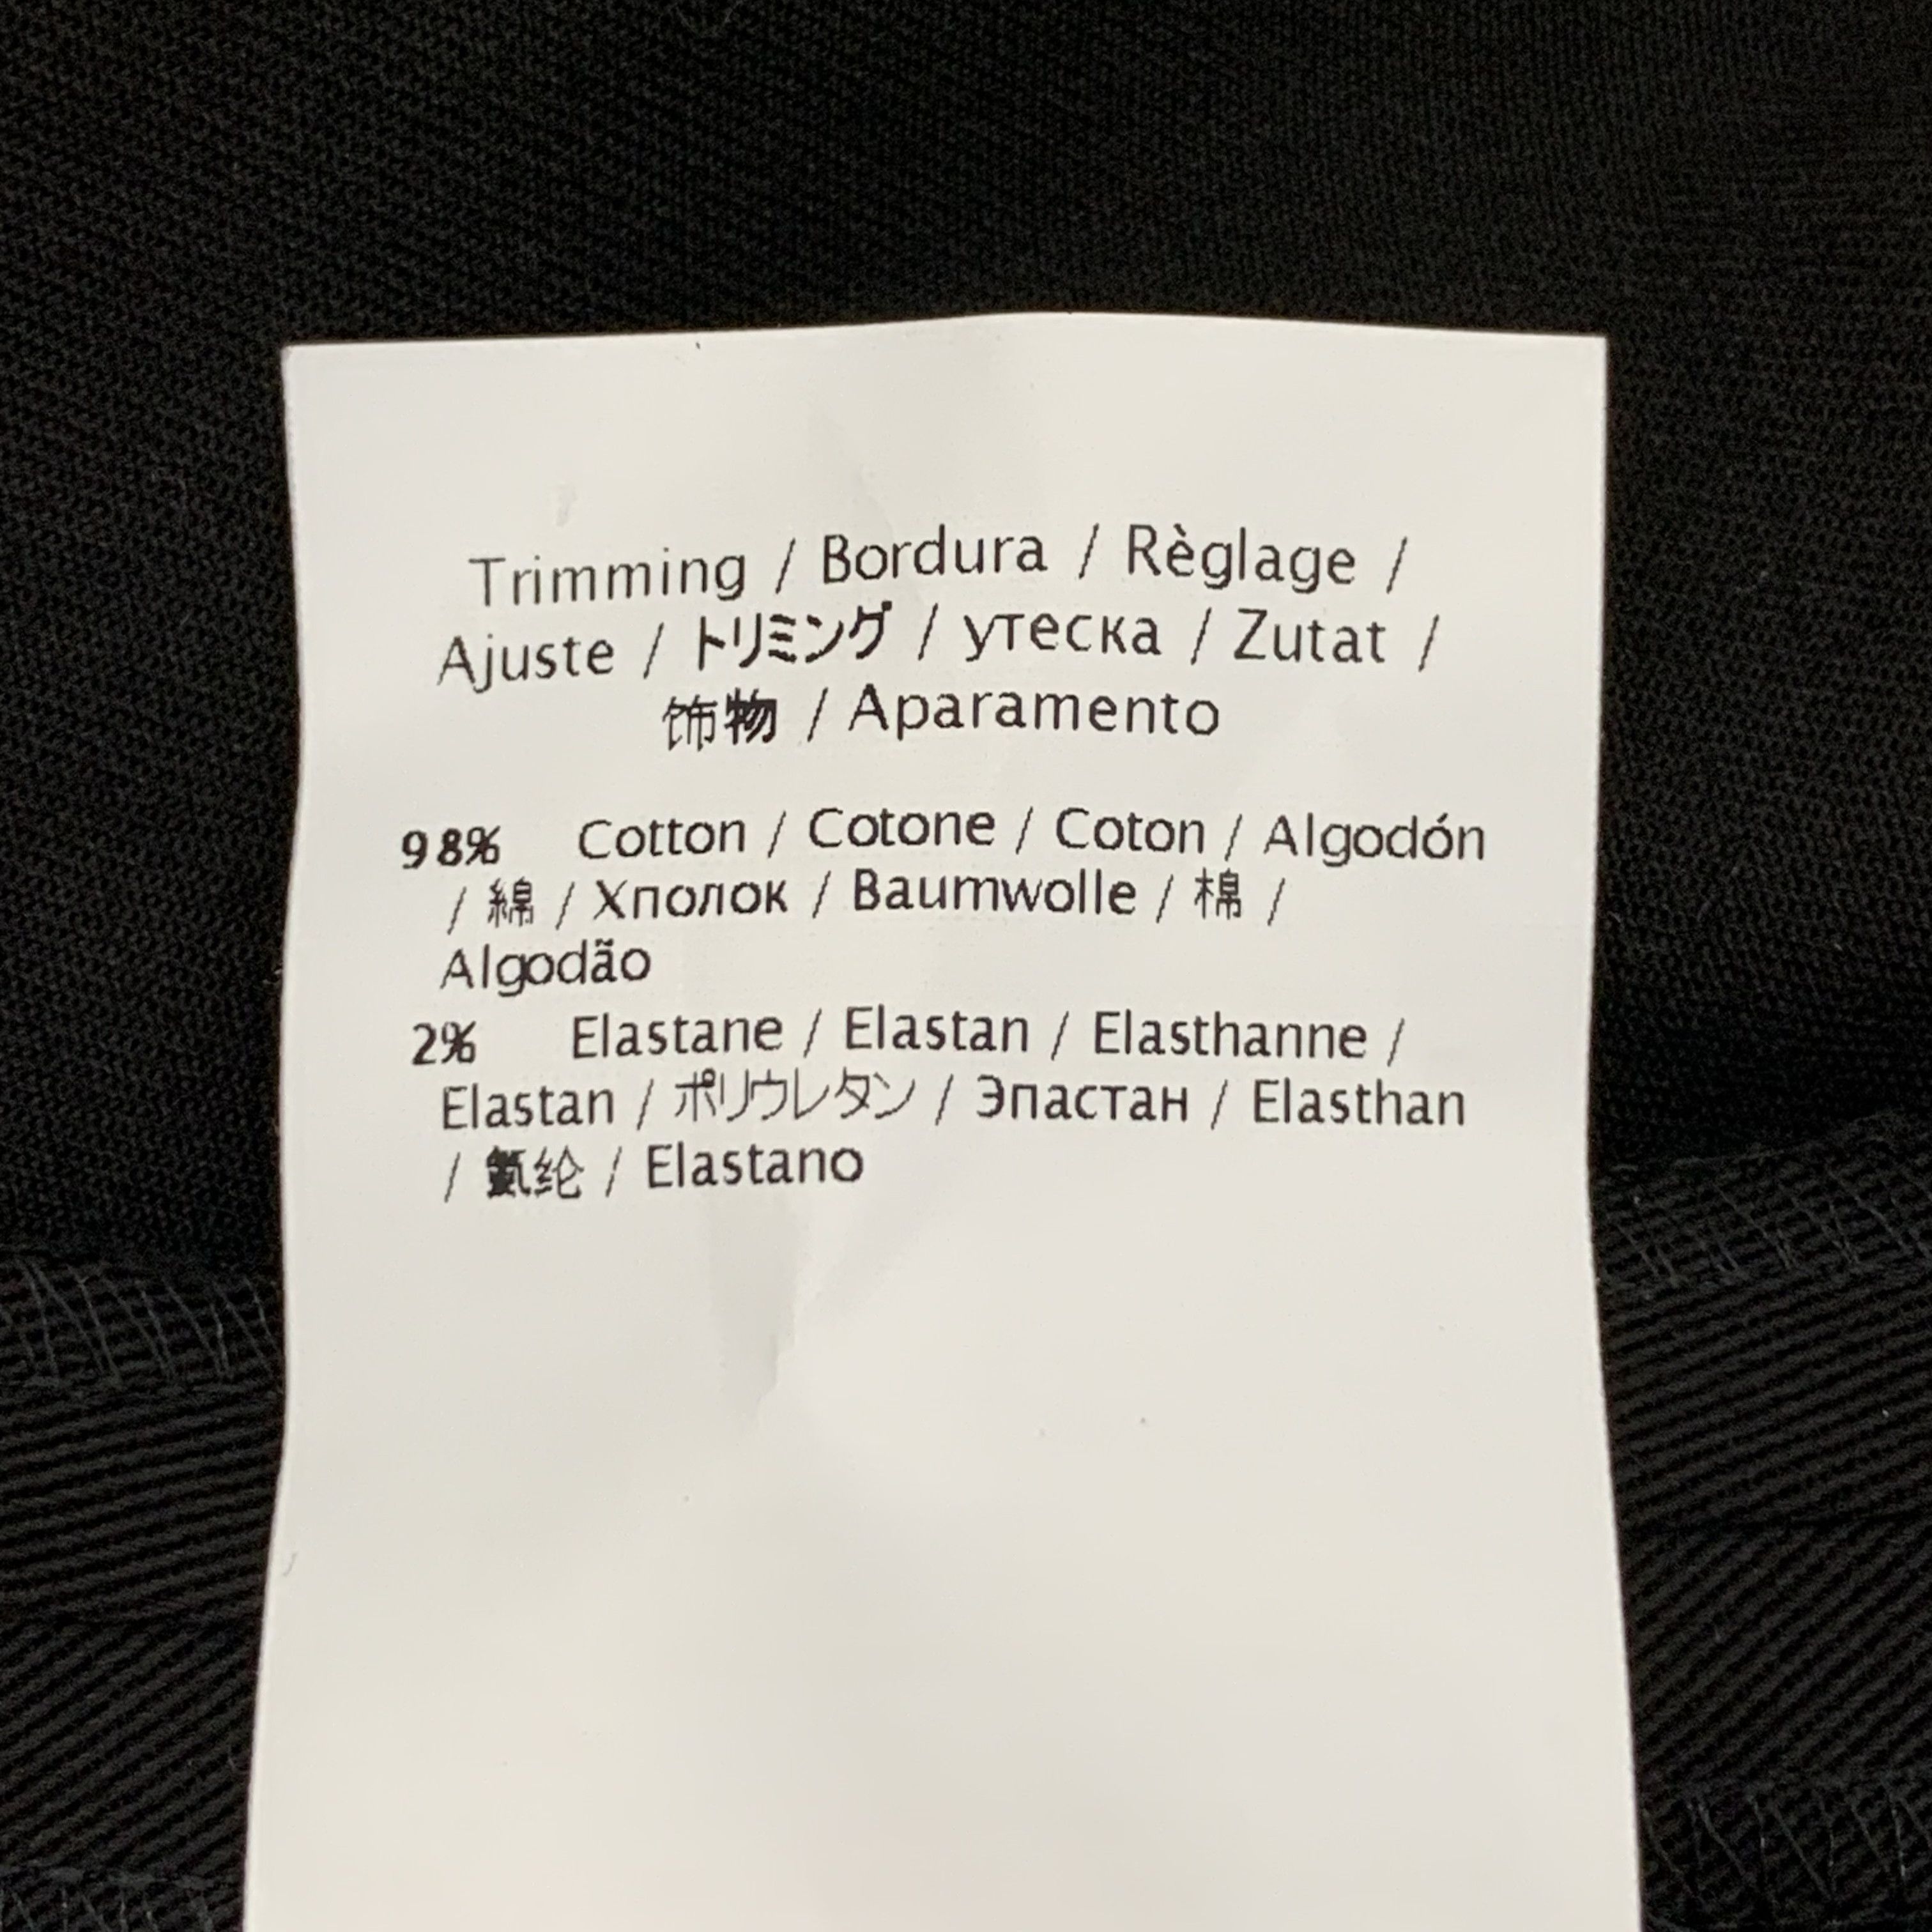 Trimming / Bordura / Règlage /
Ajuste / トリミング / утеска / Zutat /
饰物 / Aparamento
98% Cotton / Cotone / Coton / Algodón
/ 綿 / Хполок / Baumwolle / 棉 /
Algodão
2% Elastane / Elastan / Elasthanne /
Elastan / ポリウレタン / Эпастан / Elasthan
/ 氨纶 / Elastano